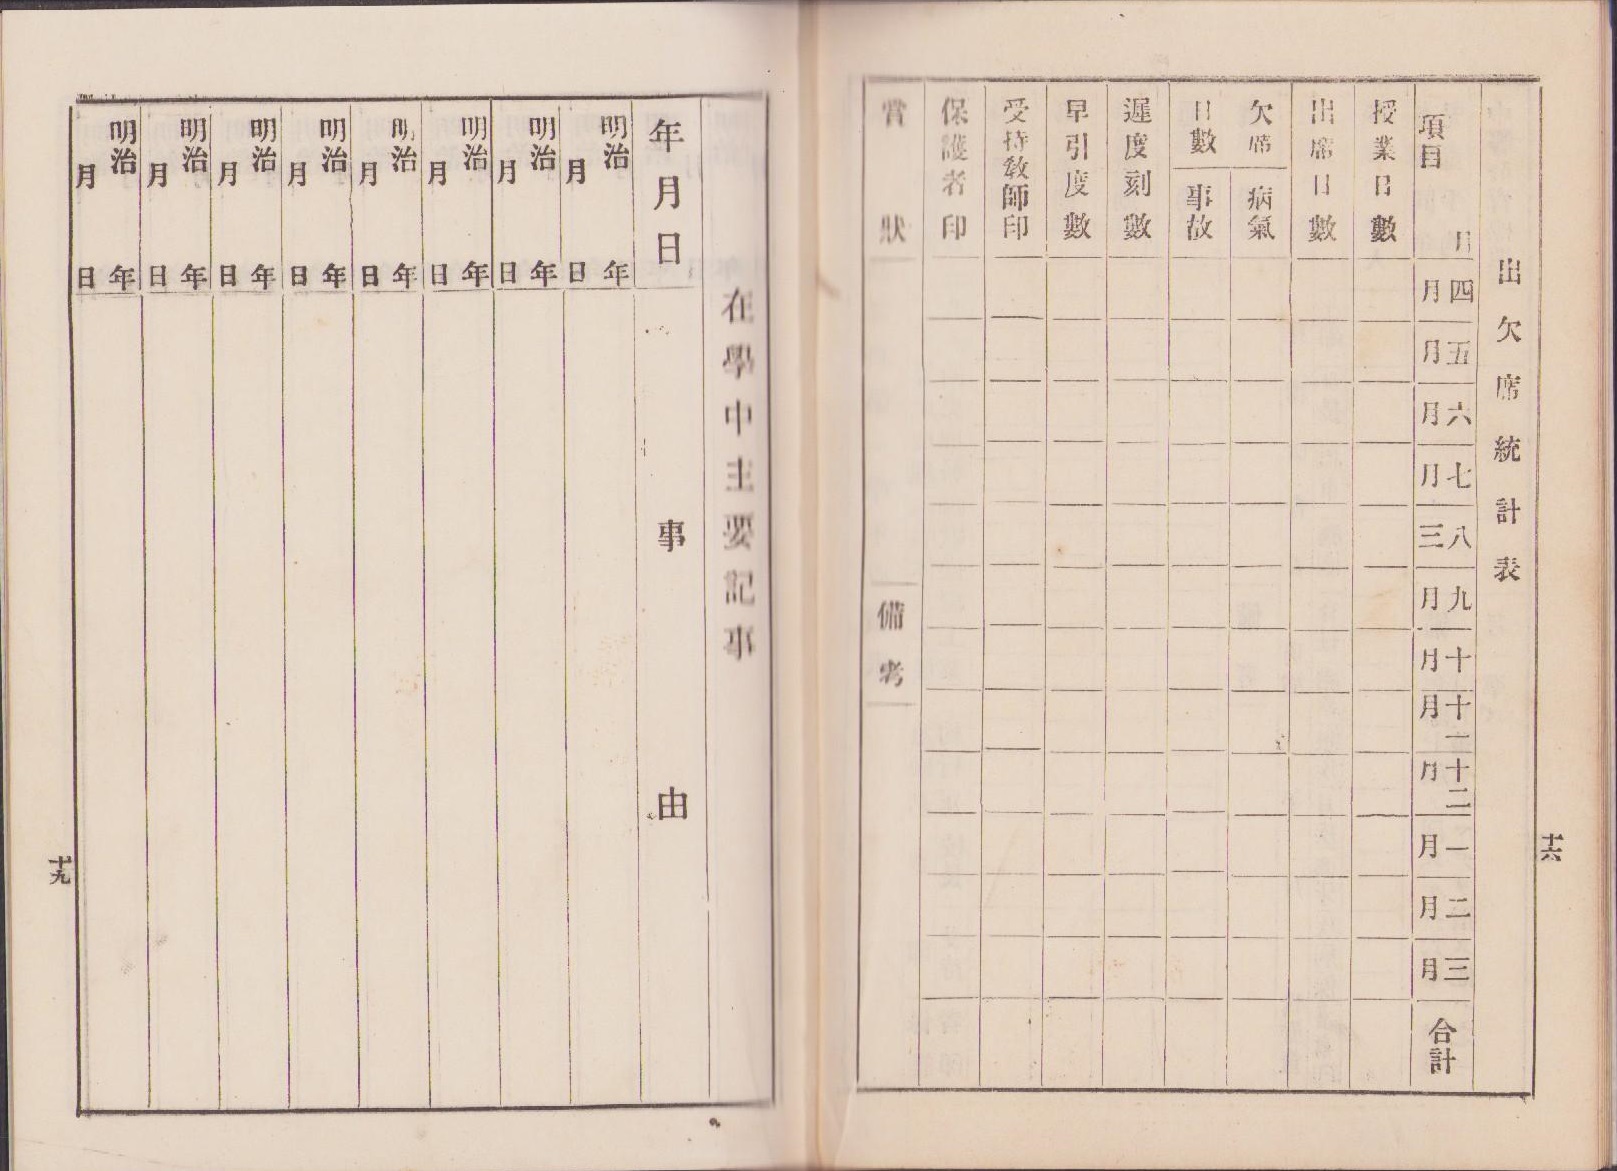 十六
出欠席統計表
項目 月
四月
五月
六月
七月
八三
九月
十月
十一月
十二月
一月
二月
三月
合計
授業日數
出席日數
欠席日數
病氣
事故
遲刻度數
早引度數
受持敎師印
保護者印
賞狀
備考
在學中主要記事
年月日
事由
明治 年
月 日
明治 年
月 日
明治 年
月 日
明治 年
月 日
明治 年
月 日
明治 年
月 日
明治 年
月 日
明治 年
月 日
十九